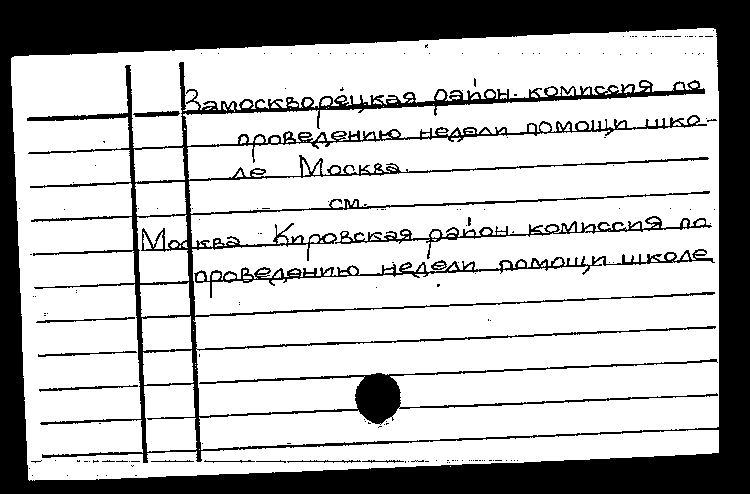 Замоскворецкая район. комиссия по
проведению недели помощи шко-
ле Москва.
см.
Москва. Кировская район. комиссия по
проведению недели помощи школе